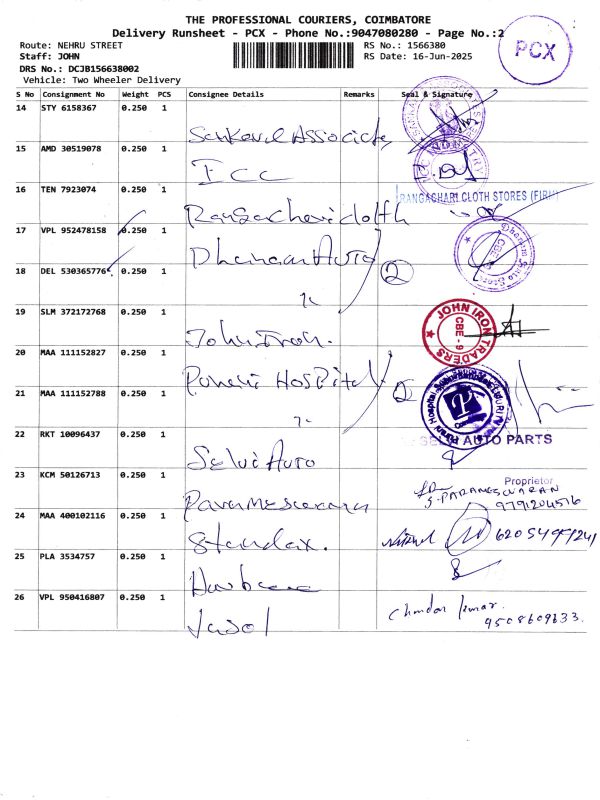 THE PROFESSIONAL COURIERS, COIMBATORE
Delivery Runsheet - PCX - Phone No.:9047080280 - Page No.:2
PCX
Route: NEHRU STREET
RS No.: 1566380
Staff: JOHN
RS Date: 16-Jun-2025
DRS No.: DCJB156638002
Vehicle: Two Wheeler Delivery
S No Consignment No Weight PCS Consignee Details Remarks Seal & Signature
14 STY 6158367 0.250 1
15 AMD 30519078 0.250 1 Icc
16 TEN 7923074 0.250 1 RANGACHARI CLOTH STORES (FIRM)
17 VPL 952478158 0.250 1 Dhanam Auto
18 DEL 530365776 0.250 1 2
19 SLM 372172768 0.250 1 John Iron.
JOHN IRON TRADERS CBE - 9
20 MAA 111152827 0.250 1 Hospital 2
21 MAA 111152788 0.250 1
22 RKT 10096437 0.250 1 Selvi Auto
AUTO PARTS
Proprietor
23 KCM 50126713 0.250 1 Parameswaran
S. PARAMESWARAN
9791204516
24 MAA 400102116 0.250 1 Standax.
25 PLA 3534757 0.250 1
26 VPL 950416807 0.250 1
Chandan kumar.
9508609633.